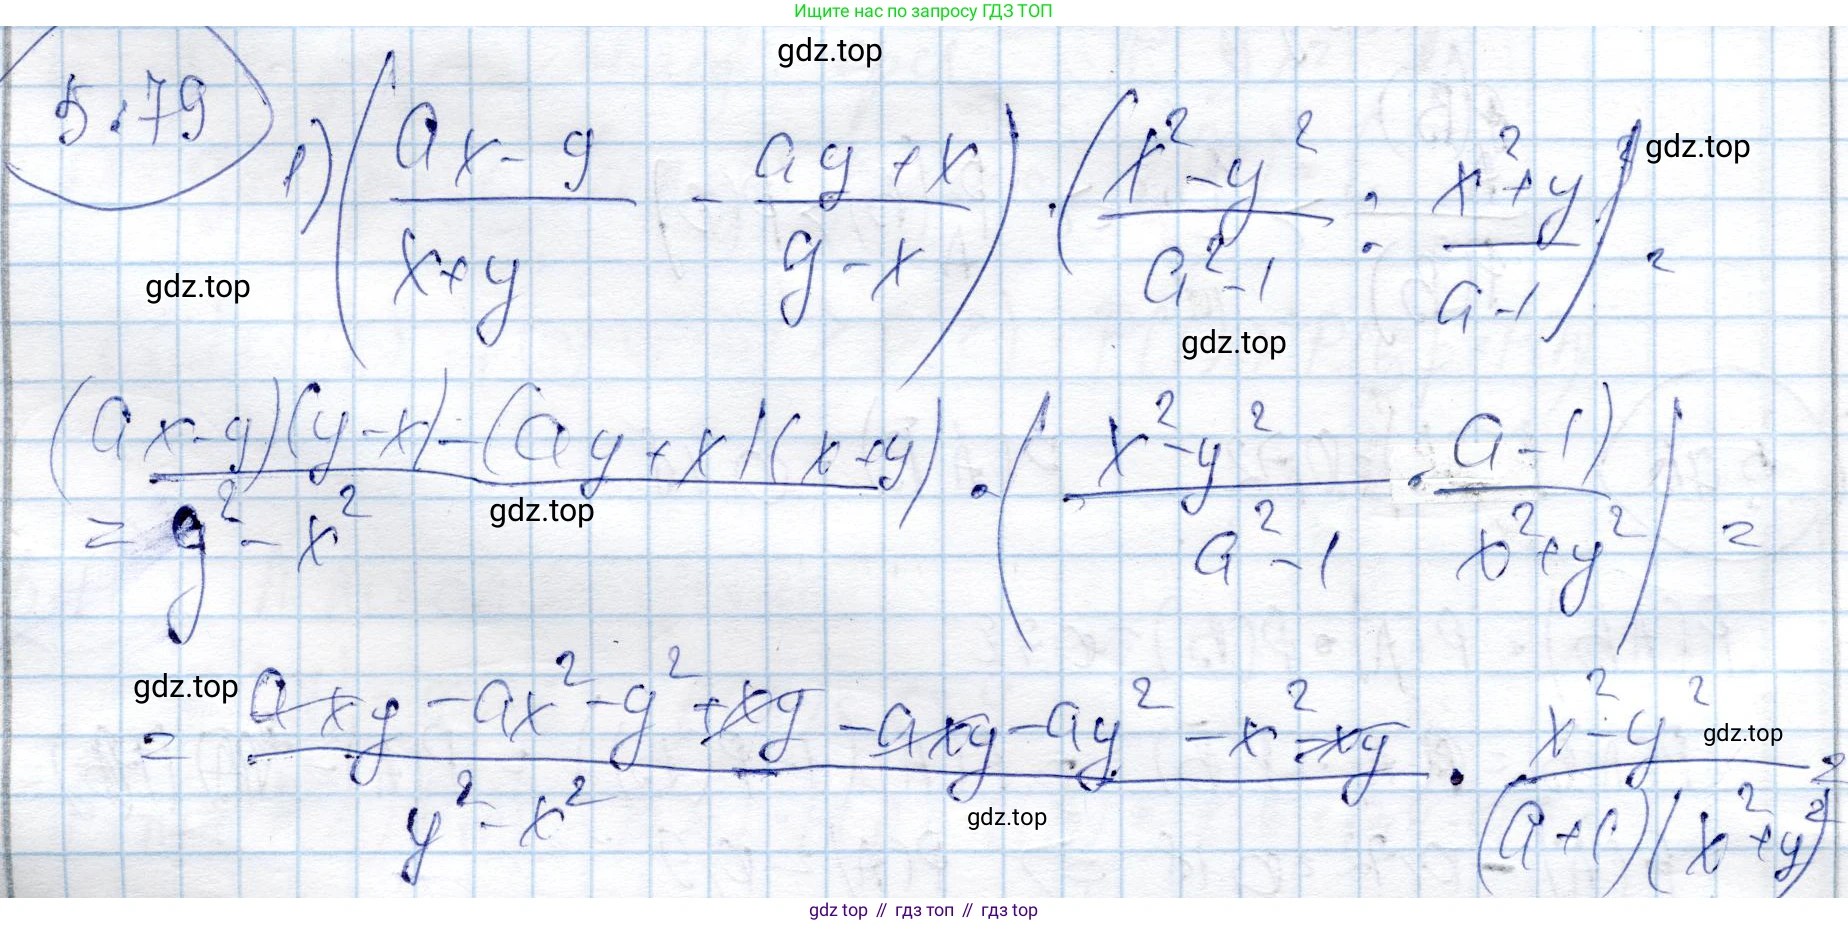 Ищите нас по запросу ГДЗ ТОП
gdz.top
5.79
1) ((ax - y)/(x + y) - (ay + x)/(y - x)) · ((x² - y²)/(a² - 1) : (x² + y²)/(a - 1)) =
gdz.top
gdz.top
gdz.top
= ((ax - y)(y - x) - (ay + x)(x + y))/(y² - x²) · ((x² - y²)/(a² - 1) · (a - 1)/(x² + y²)) =
gdz.top
gdz.top
= (axy - ax² - y² + xy - axy - ay² - x² - xy)/(y² - x²) · (x² - y²)/((a + 1)(x² + y²)) =
gdz.top
gdz.top
gdz top // гдз топ // гдз top